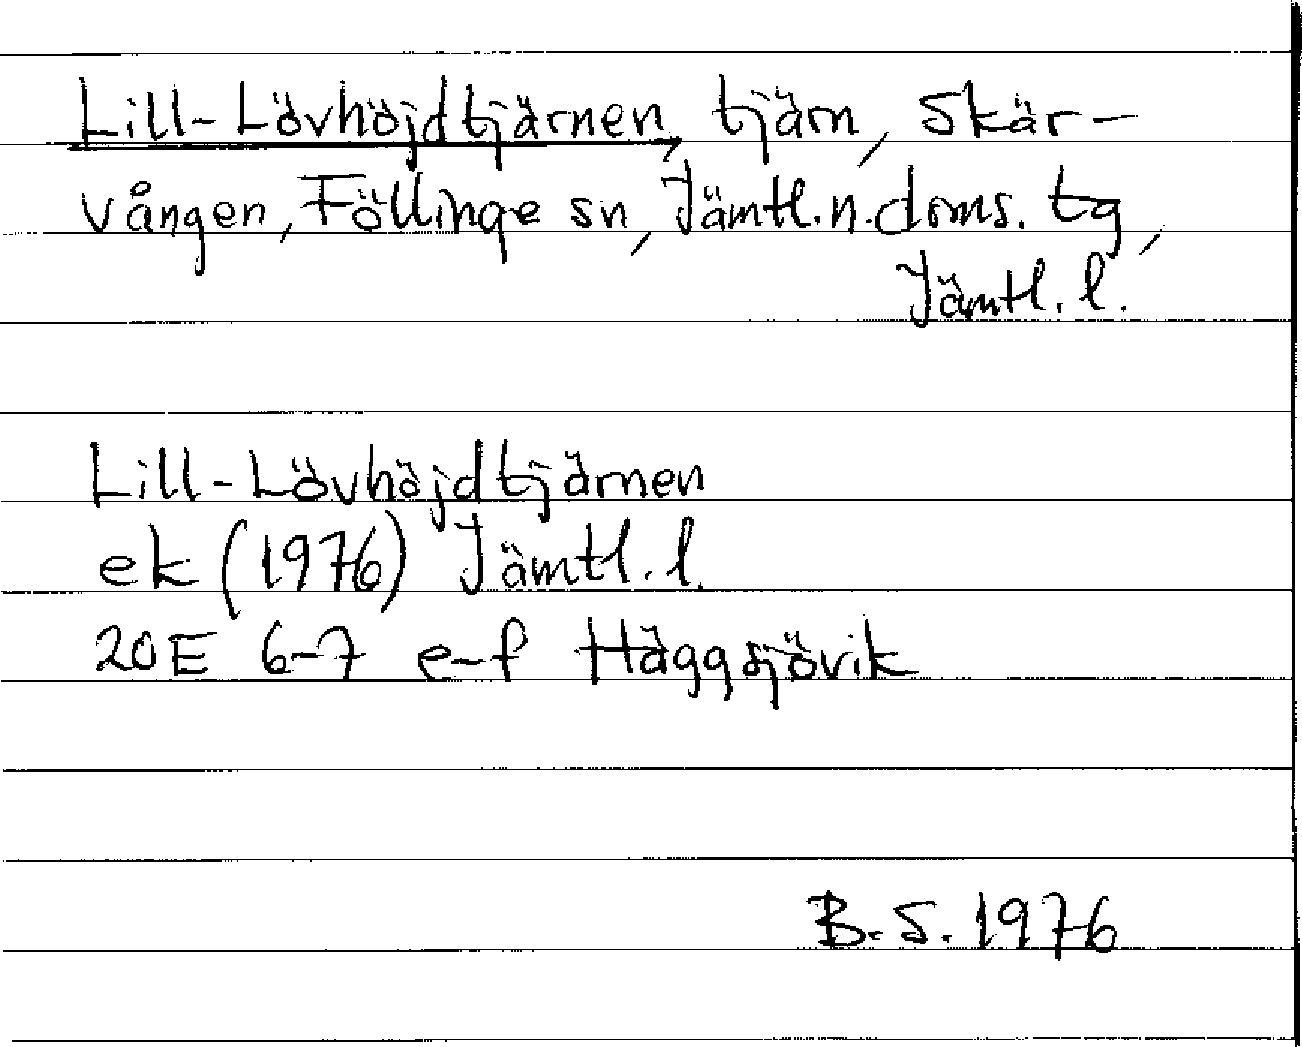 Lill-Lövhöjdtjärnen, tjärn, Skär-
vången, Föllinge sn, Jämtl.n.doms. tg,
Jämtl. l.
Lill-Lövhöjdtjärnen
ek (1976) Jämtl. l.
20E 6-7 e-f Häggsjövik
B.S. 1976